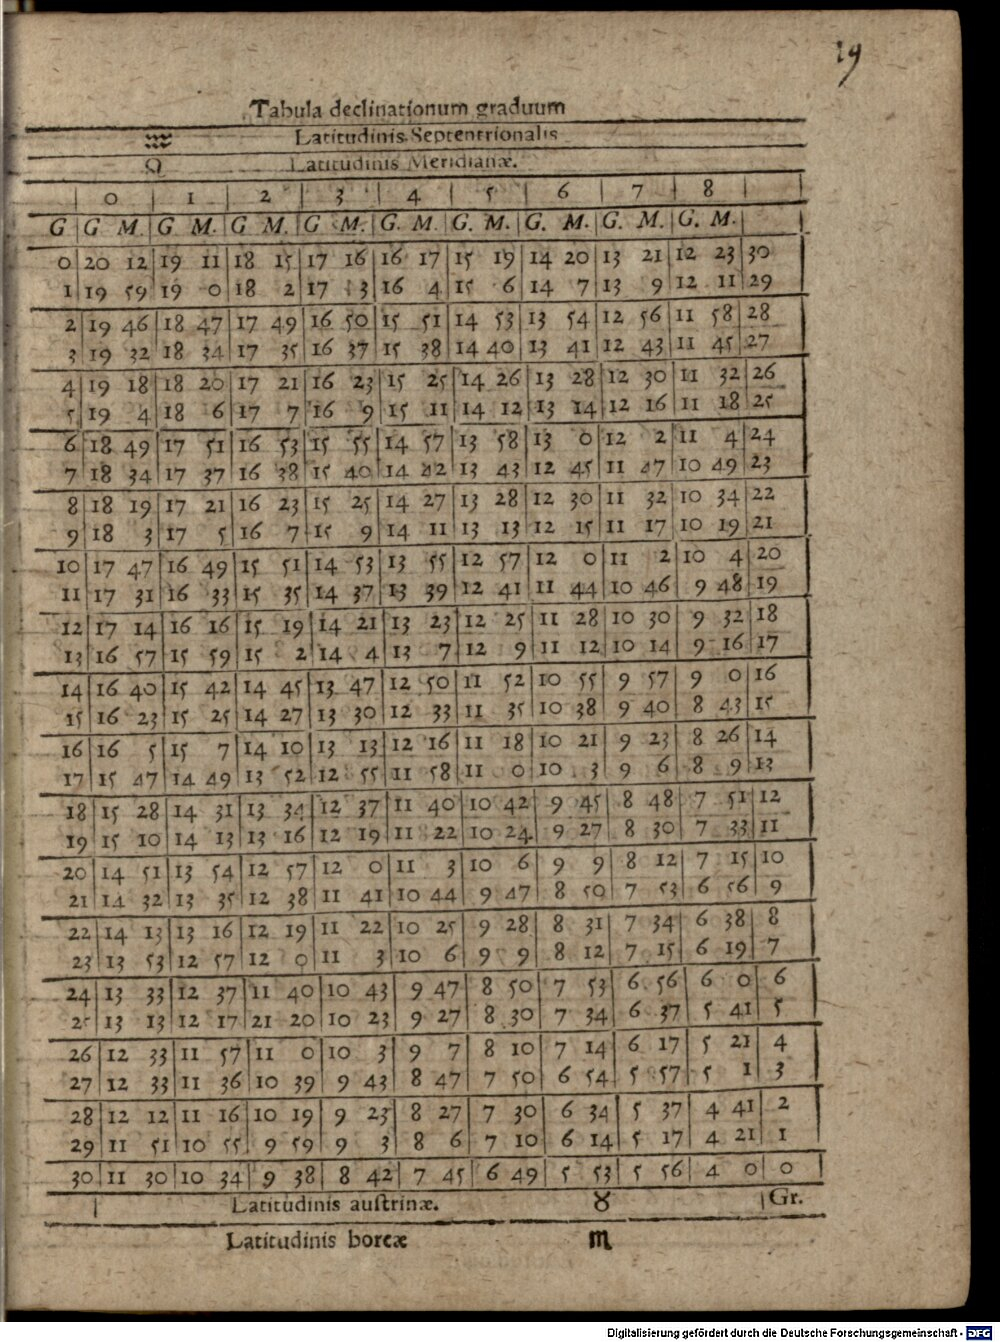 19
Tabula declinationum graduum
♒ Latitudinis Septentrionalis
♌ Latitudinis Meridianæ.
0 1 2 3 4 5 6 7 8
G G M. G M. G M. G M. G. M. G. M. G. M. G. M. G. M.
0 20 12 19 11 18 15 17 16 16 17 15 19 14 20 13 21 12 23 30
1 19 59 19 0 18 2 17 3 16 4 15 6 14 7 13 9 12 11 29
2 19 46 18 47 17 49 16 50 15 51 14 53 13 54 12 56 11 58 28
3 19 32 18 34 17 35 16 37 15 38 14 40 13 41 12 43 11 45 27
4 19 18 18 20 17 21 16 23 15 25 14 26 13 28 12 30 11 32 26
5 19 4 18 6 17 7 16 9 15 11 14 12 13 14 12 16 11 18 25
6 18 49 17 51 16 53 15 55 14 57 13 58 13 0 12 2 11 4 24
7 18 34 17 37 16 38 15 40 14 42 13 43 12 45 11 47 10 49 23
8 18 19 17 21 16 23 15 25 14 27 13 28 12 30 11 32 10 34 22
9 18 3 17 5 16 7 15 9 14 11 13 13 12 15 11 17 10 19 21
10 17 47 16 49 15 51 14 53 13 55 12 57 12 0 11 2 10 4 20
11 17 31 16 33 15 35 14 37 13 39 12 41 11 44 10 46 9 48 19
12 17 14 16 16 15 19 14 21 13 23 12 25 11 28 10 30 9 32 18
13 16 57 15 59 15 2 14 4 13 7 12 9 11 12 10 14 9 16 17
14 16 40 15 42 14 45 13 47 12 50 11 52 10 55 9 57 9 0 16
15 16 23 15 25 14 27 13 30 12 33 11 35 10 38 9 40 8 43 15
16 16 5 15 7 14 10 13 13 12 16 11 18 10 21 9 23 8 26 14
17 15 47 14 49 13 52 12 55 11 58 11 0 10 3 9 6 8 9 13
18 15 28 14 31 13 34 12 37 11 40 10 42 9 45 8 48 7 51 12
19 15 10 14 13 13 16 12 19 11 22 10 24 9 27 8 30 7 33 11
20 14 51 13 54 12 57 12 0 11 3 10 6 9 9 8 12 7 15 10
21 14 32 13 35 12 38 11 41 10 44 9 47 8 50 7 53 6 56 9
22 14 13 13 16 12 19 11 22 10 25 9 28 8 31 7 34 6 38 8
23 13 53 12 57 12 0 11 3 10 6 9 9 8 12 7 15 6 19 7
24 13 33 12 37 11 40 10 43 9 47 8 50 7 53 6 56 6 0 6
25 13 13 12 17 21 20 10 23 9 27 8 30 7 34 6 37 5 41 5
26 12 33 11 57 11 0 10 3 9 7 8 10 7 14 6 17 5 21 4
27 12 33 11 36 10 39 9 43 8 47 7 50 6 54 5 57 5 1 3
28 12 12 11 16 10 19 9 23 8 27 7 30 6 34 5 37 4 41 2
29 11 51 10 55 9 59 9 3 8 6 7 10 6 14 5 17 4 21 1
30 11 30 10 34 9 38 8 42 7 45 6 49 5 53 5 56 4 0 0
Latitudinis austrinæ. ♉ Gr.
Latitudinis boreæ ♏
Digitalisierung gefördert durch die Deutsche Forschungsgemeinschaft - DFG